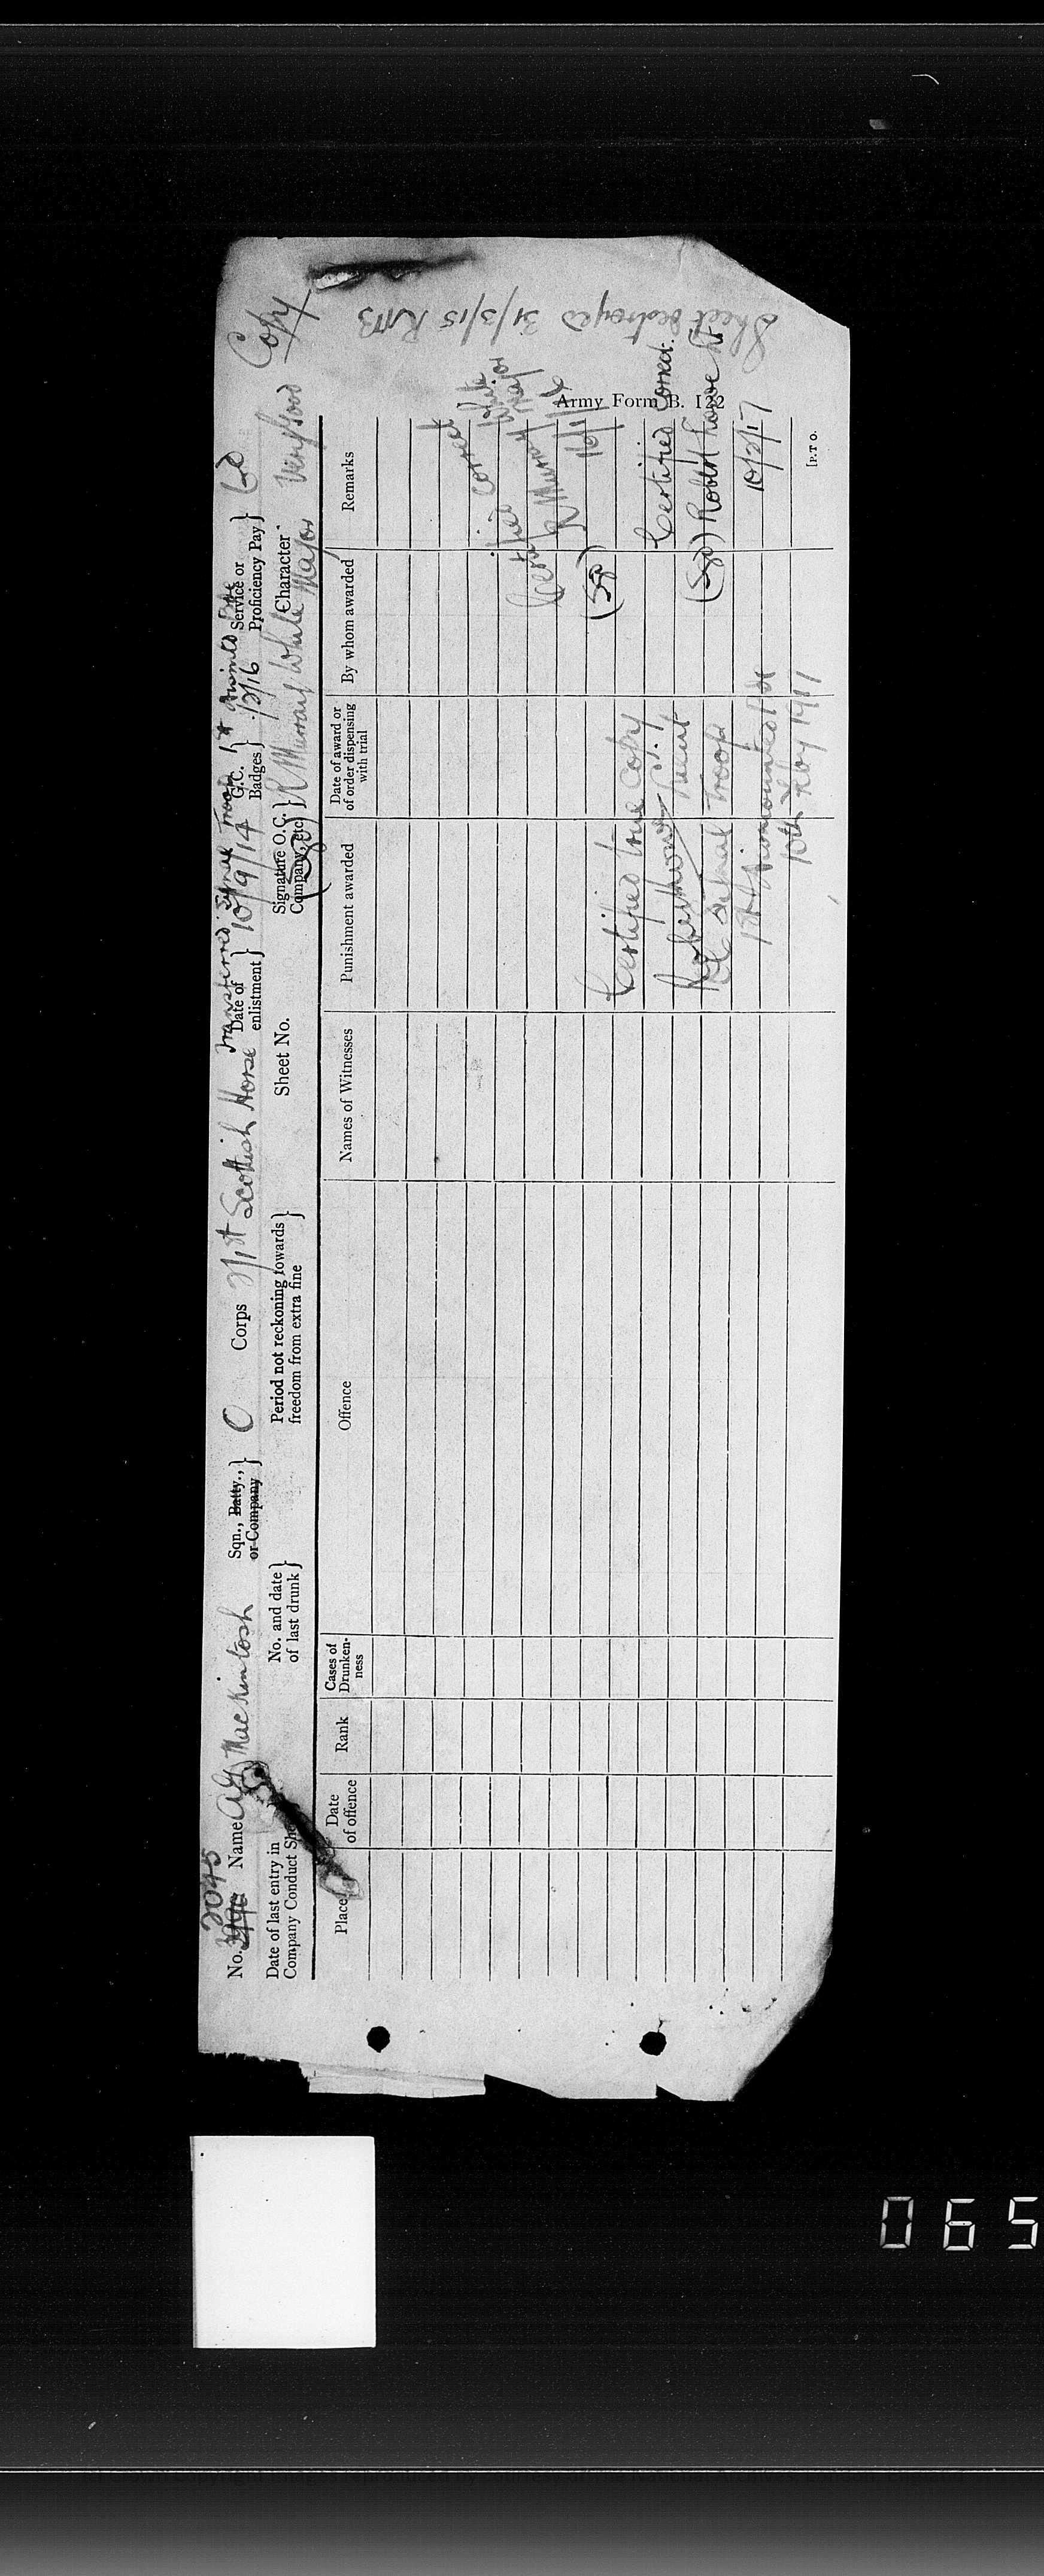 Copy
Army Form B. 122
Sheet destroyed 31/3/15 RMB
2045
No. Name A G Mackintosh Sqn., Batty., or Company } C Corps 2/1st Scottish Horse Date of enlistment } 10/9/14 G.C. Badges } Service or Proficiency Pay }
Transferred Signal Troop 1st 12/16
Date of last entry in Company Conduct She No. and date of last drunk } Period not reckoning towards freedom from extra fine } Sheet No. Signature O.C. Company, etc. } R Murray White Major Character Very Good
(Sgd)
Place Date of offence Rank Cases of Drunken-ness Offence Names of Witnesses Punishment awarded Date of award or of order dispensing with trial By whom awarded Remarks
Certified correct
(Sgd) R Murray White Major
16/1/16
Certified correct.
(Sgd) Robert Lt
10/2/17
Certified true copy
Robert Lieut
OC Signal Troop
1st Dismounted
10th Feby 1917
[P.T.O.
065